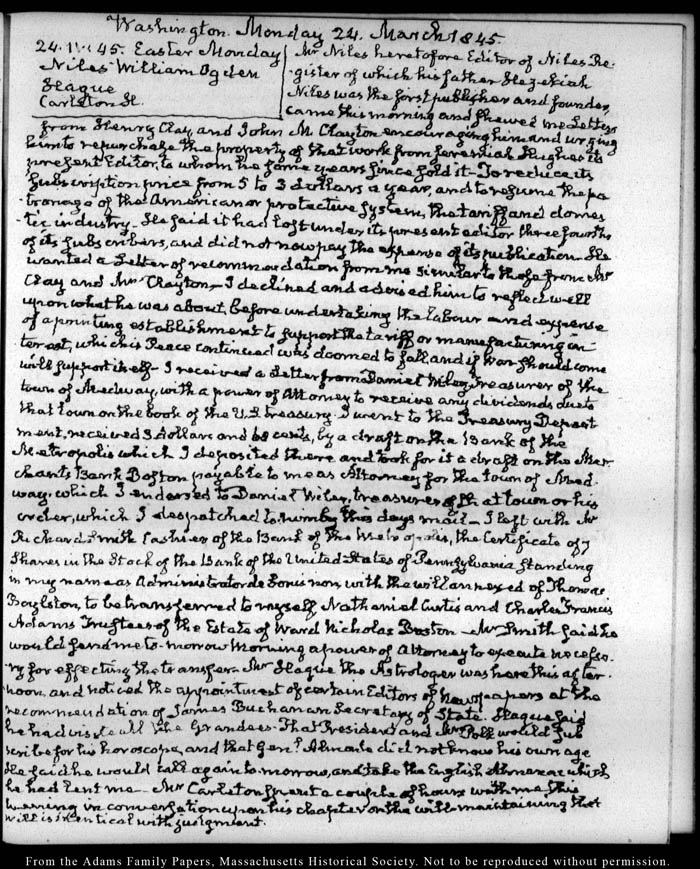 Washington. Monday 24. March 1845.
24. IV. 45. Easter Monday
Niles William Ogden
Hague
Carleton H.
Mr Niles heretofore Editor of Niles Re-
gister of which his father Hezekiah
Niles was the first publisher and founder,
came this morning and shewed me Letters
from Henry Clay, and John M Clayton encouraging him and urging
him to repurchase the property of that work from Jeremiah Hughes its
present Editor, to whom he some years since sold it— To reduce its
subscription price from 5 to 3 dollars a year, and to resume the pa-
tronage of the American or protective System, the tariff and domes-
tic industry— He said it had lost under its present editor three fourths
of its subscribers, and did not now pay the expense of its publication. He
wanted a Letter of recommendation from me similar to those from Mr
Clay and Mr Clayton— I declined and advised him to reflect well
upon what he was about, before undertaking the labour and expense
of a printing establishment to support the tariff or manufacturing in-
terest, which is Peace continued was doomed to fall and if War should come
will support itself— I received a Letter from Daniel Wiley, Treasurer of the
town of Medway, with a power of Attorney to receive any dividends due to
that town on the book of the U.S. treasury. I went to the Treasury Depart-
ment, received 3 dollars and 68 cents, by a draft on the Bank of the
Metropolis which I deposited there and took for it a draft on the Mer-
chants Bank Boston payable to me as Attorney for the town of Med-
way, which I endorsed to Daniel Wiley, treasurer of that town or his
order, which I despatched to him by this days mail— I left with Mr
Richard Smith Cashier of the Bank of the Metropolis, the Certificate of 7
Shares in the Stock of the Bank of the United States of Pennsylvania standing
in my name as Administrator de bonis non, with the will annexed of Thomas
Boylston, to be transferred to myself Nathaniel Curtis and Charles Francis
Adams Trustees of the Estate of Ward Nicholas Boston— Mr Smith said he
would send me to-morrow morning a power of Attorney to execute necessa-
ry for effecting the transfer— Mr Hague the Astrologer was here this after-
noon, and noticed the appointment of certain Editors of Newspapers at the
recommendation of James Buchanan Secretary of State. Hague said
he had visited all the Grandees— That President and Mrs Polk would sub-
scribe for his horoscope, and that Genl. Almonte did not know his own age
He said he would call again to-morrow, and take the English Almanac which
he had lent me— Mr Carleton spent a couple of hours with me this
evening in conversation upon his chapter on the will— maintaining that
will is identical with judgment.
From the Adams Family Papers, Massachusetts Historical Society. Not to be reproduced without permission.